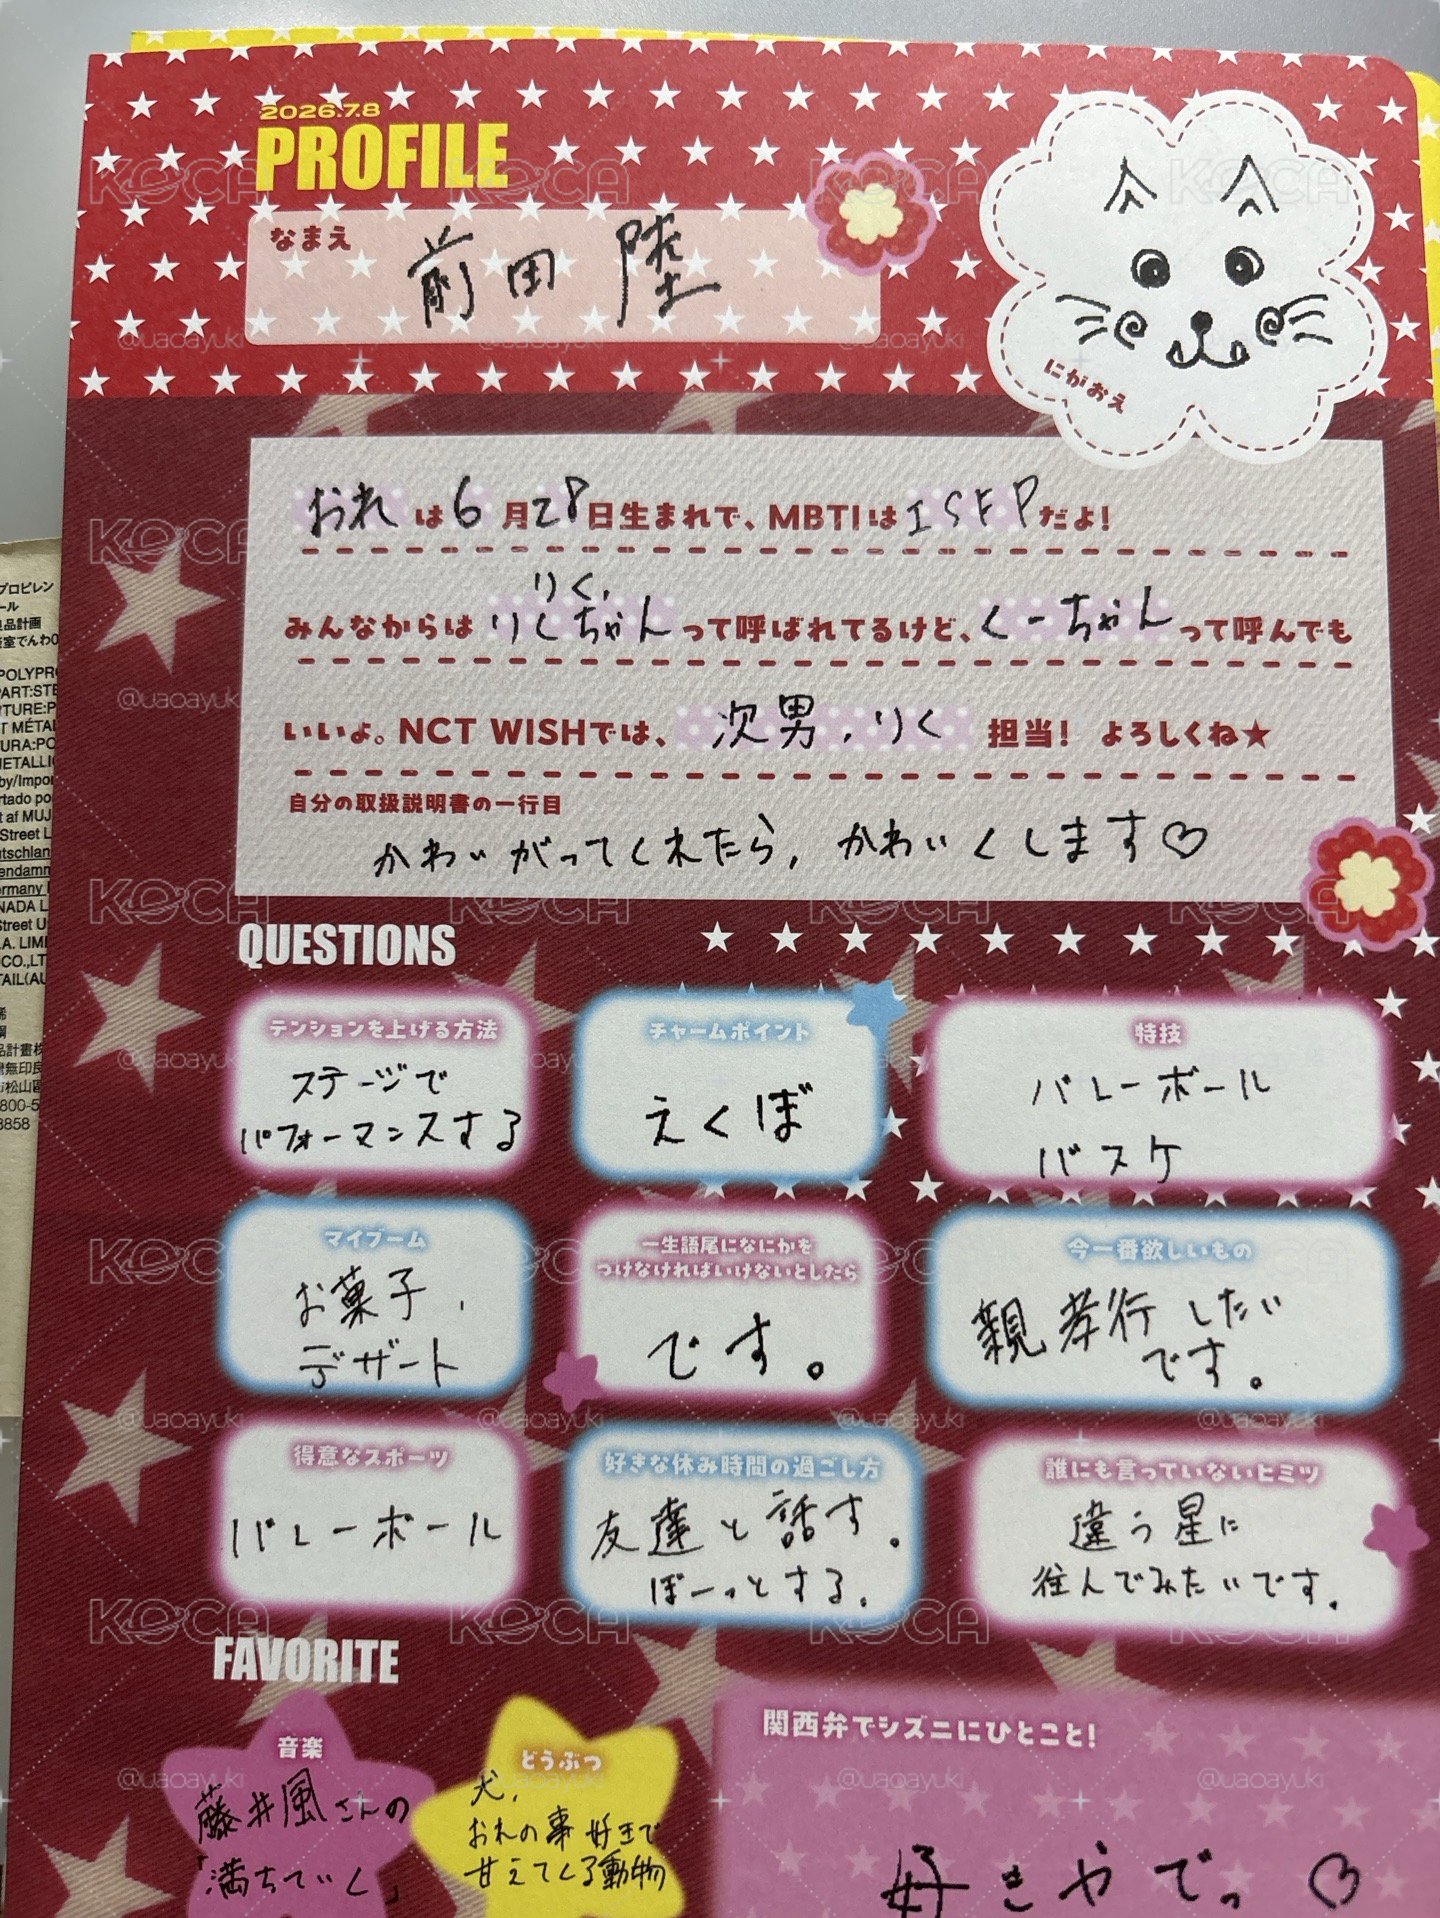 2026.7.8
PROFILE
なまえ
前田 陸
にがおえ
おれは6月28日生まれで、MBTIはISFPだよ!
りく,
みんなからはりくちゃんって呼ばれてるけど、くーちゃんって呼んでも
いいよ。NCT WISHでは、次男、りく担当! よろしくね★
自分の取扱説明書の一行目
かわいがってくれたら, かわいくします♡
QUESTIONS
テンションを上げる方法
ステージで
パフォーマンスする
チャームポイント
えくぼ
特技
バレーボール
バスケ
マイブーム
お菓子,
デザート
一生語尾になにかを
つけなければいけないとしたら
です。
今一番欲しいもの
親孝行したい
です。
得意なスポーツ
バレーボール
好きな休み時間の過ごし方
友達と話す。
ぼーっとする。
誰にも言っていないヒミツ
違う星に
住んでみたいです。
FAVORITE
音楽
藤井風さんの
「満ちていく」
どうぶつ
犬,
おれの事好きで
甘えてくる動物
関西弁でシズニにひとこと!
好きやでっ♡
プロピレン
ール
良品計画
POLYPRO
PART:STE
METALLIC
by/Impor
rtado po
af MUJ
Street L
utschlan
ermany
NADA L
Street U
A. LIMI
CO.,LT
TAIL(AU
無印良
松山區
0800-5
8858
KOCA
@uaoayuki